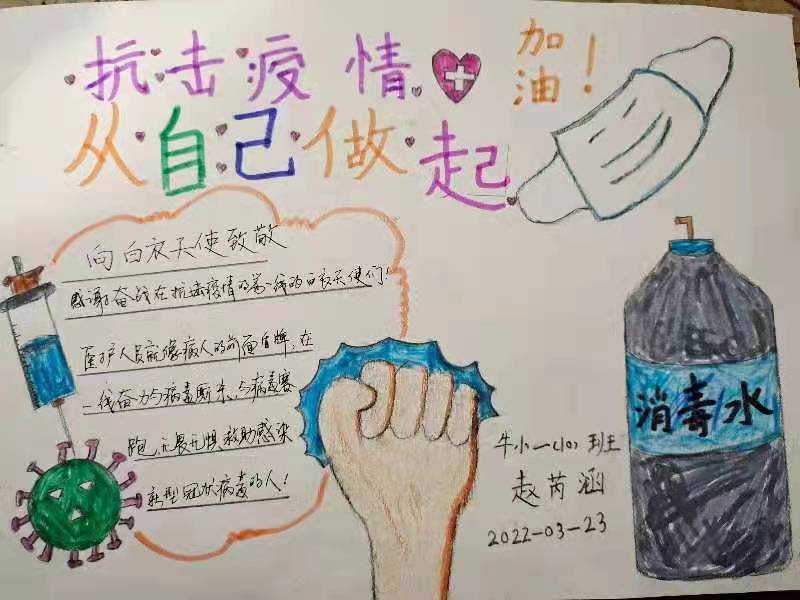 抗击疫情
加油！
从自己做起
向白衣天使致敬
感谢奋战在抗击疫情的第一线的白衣天使们！
医护人员就像病人的前面盾牌，在
一线奋力与病毒厮杀，与病毒赛
跑，无畏无惧救助感染
新型冠状病毒的人！
消毒水
牛小一(10)班
赵芮涵
2022-03-23